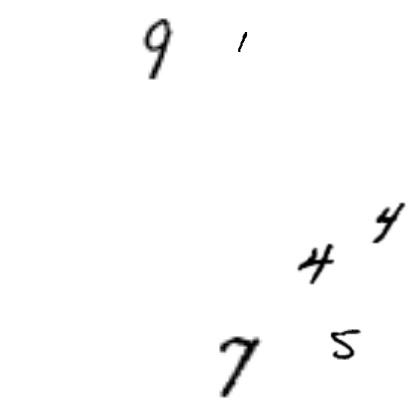 9 1
4
4
7 5